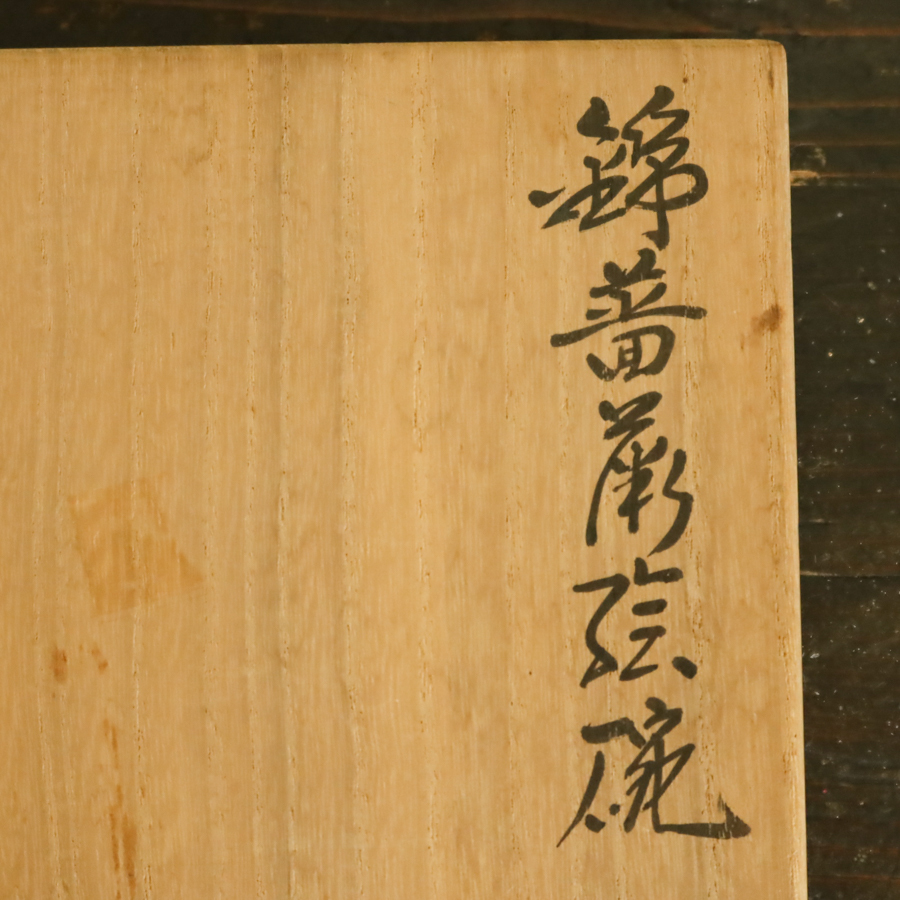 錦薔薇絵碗